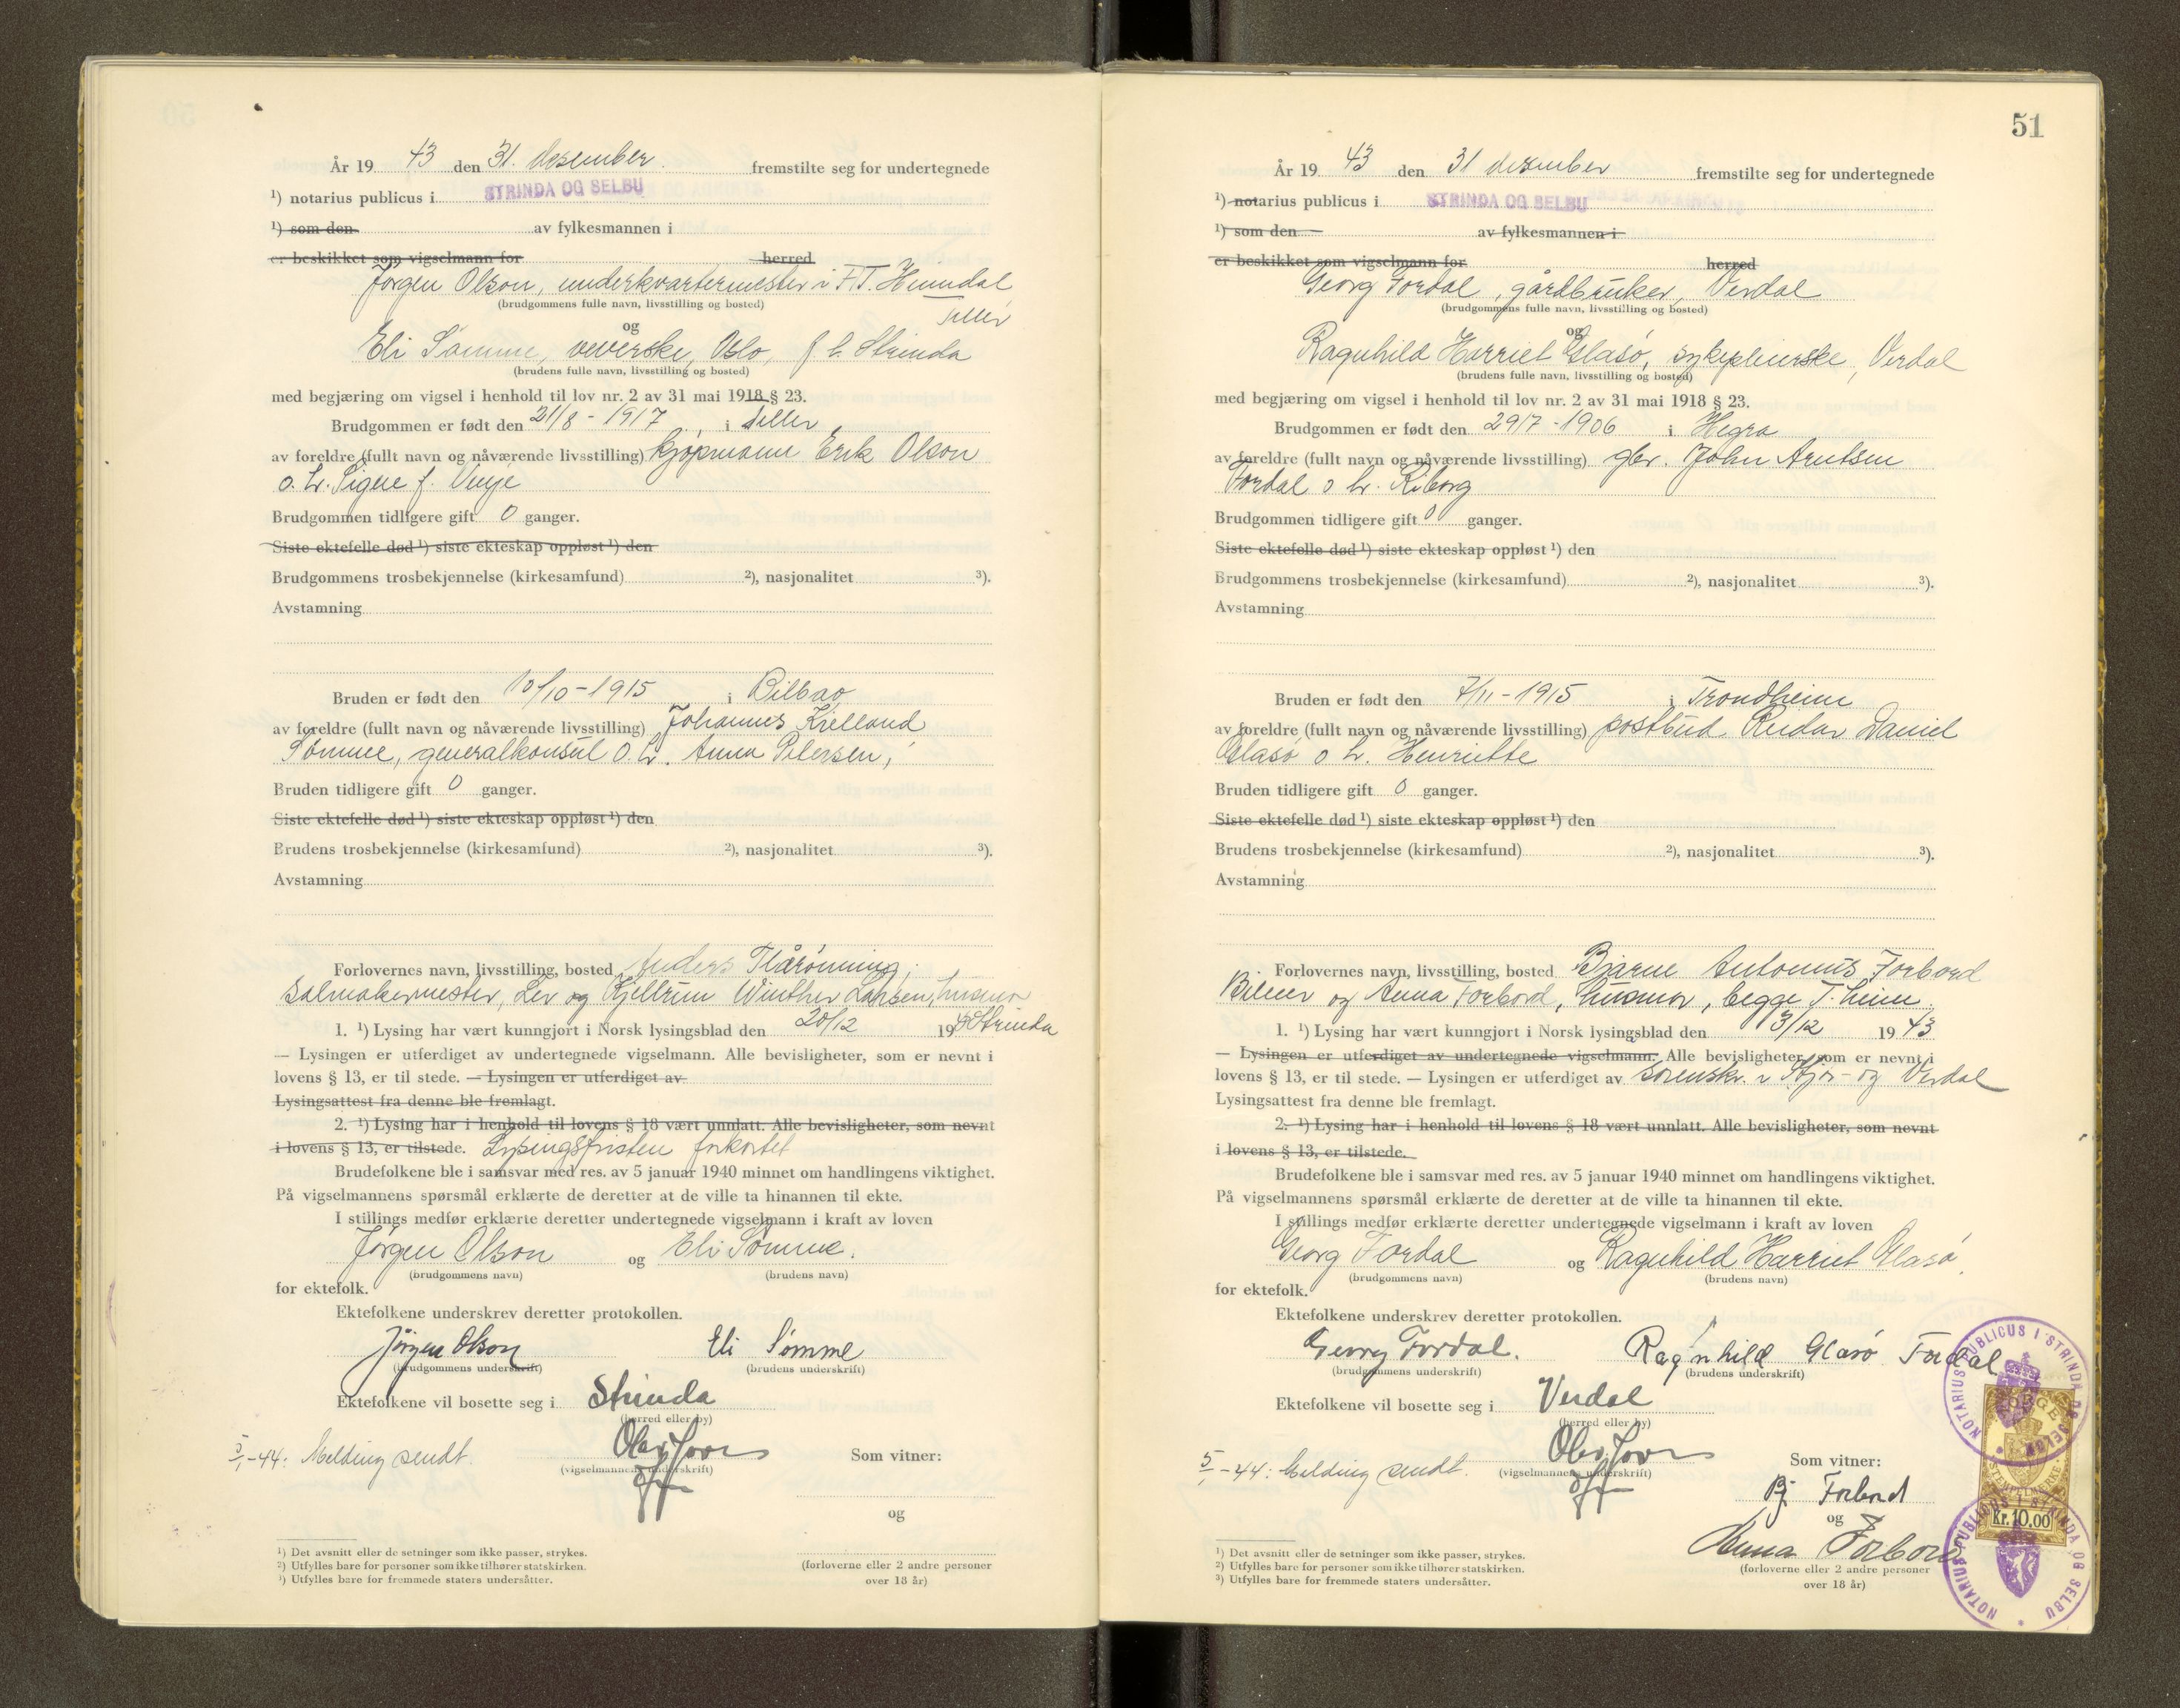 År 19 43 den 31. desember fremstilte seg for undertegnede
¹) notarius publicus i STRINDA OG SELBU
¹) som den av fylkesmannen i
er beskikket som vigselmann for herred
Jørgen Olson, underkvartermester i F.T. Heimdal
(brudgommens fulle navn, livsstilling og bosted)
Tiller
og
Eli Sømme, veverske, Oslo, f h. Strinda
(brudens fulle navn, livsstilling og bosted)
med begjæring om vigsel i henhold til lov nr. 2 av 31 mai 1918 § 23.
Brudgommen er født den 21/8 - 1917 i Tiller
av foreldre (fullt navn og nåværende livsstilling) kjøpmann Erik Olson
o. h. Signe f. Vinje
Brudgommen tidligere gift 0 ganger.
Siste ektefelle død ¹) siste ekteskap oppløst ¹) den
Brudgommens trosbekjennelse (kirkesamfund) ²), nasjonalitet ³).
Avstamning
Bruden er født den 10/10 - 1915 i Bilbao
av foreldre (fullt navn og nåværende livsstilling) Johannes Kielland
Sømme, generalkonsul o. h. Anna Petersen,
Bruden tidligere gift 0 ganger.
Siste ektefelle død ¹) siste ekteskap oppløst ¹) den
Brudens trosbekjennelse (kirkesamfund) ²), nasjonalitet ³).
Avstamning
Forlovernes navn, livsstilling, bosted Anders Flårønning,
salmakermester, Ler og Kjellrun Winther Larsen, husmor
1. ¹) Lysing har vært kunngjort i Norsk lysingsblad den 20/12 19 Strinda
— Lysingen er utferdiget av undertegnede vigselmann. Alle bevisligheter, som er nevnt i
lovens § 13, er til stede. — Lysingen er utferdiget av
Lysingsattest fra denne ble fremlagt.
2. ¹) Lysing har i henhold til lovens § 18 vært unnlatt. Alle bevisligheter, som nevnt
i lovens § 13, er tilstede. Lysingsfristen forkortet
Brudefolkene ble i samsvar med res. av 5 januar 1940 minnet om handlingens viktighet.
På vigselmannens spørsmål erklærte de deretter at de ville ta hinannen til ekte.
I stillings medfør erklærte deretter undertegnede vigselmann i kraft av loven
Jørgen Olson og Eli Sømme.
(brudgommens navn) (brudens navn)
for ektefolk.
Ektefolkene underskrev deretter protokollen.
Jørgen Olson Eli Sømme
(brudgommens underskrift) (brudens underskrift)
Ektefolkene vil bosette seg i Strinda
(herred eller by)
5/1-44: Melding sendt.
(vigselmannens underskrift)
Som vitner:
og
(forloverne eller 2 andre personer
over 18 år)
¹) Det avsnitt eller de setninger som ikke passer, strykes.
²) Utfylles bare for personer som ikke tilhører statskirken.
³) Utfylles bare for fremmede staters undersåtter.
51
År 19 43 den 31 desember fremstilte seg for undertegnede
¹) notarius publicus i STRINDA OG SELBU
¹) som den av fylkesmannen i
er beskikket som vigselmann for herred
Georg Fordal, gårdbruker, Verdal
(brudgommens fulle navn, livsstilling og bosted)
og
Ragnhild Harriet Glasø, sykepleierske, Verdal
(brudens fulle navn, livsstilling og bosted)
med begjæring om vigsel i henhold til lov nr. 2 av 31 mai 1918 § 23.
Brudgommen er født den 29/7 - 1906 i Hegra
av foreldre (fullt navn og nåværende livsstilling) gbr. John Arntsen
Fordal o h. Riborg
Brudgommen tidligere gift 0 ganger.
Siste ektefelle død ¹) siste ekteskap oppløst ¹) den
Brudgommens trosbekjennelse (kirkesamfund) ²), nasjonalitet ³).
Avstamning
Bruden er født den 7/11 - 1915 i Trondheim
av foreldre (fullt navn og nåværende livsstilling) postbud Reidar Daniel
Glasø o h. Henriette
Bruden tidligere gift 0 ganger.
Siste ektefelle død ¹) siste ekteskap oppløst ¹) den
Brudens trosbekjennelse (kirkesamfund) ²), nasjonalitet ³).
Avstamning
Forlovernes navn, livsstilling, bosted Bjarne Antonius Forbord
og Anna Forbord, husmor, begge T.heim.
1. ¹) Lysing har vært kunngjort i Norsk lysingsblad den 13/12 19 43
— Lysingen er utferdiget av undertegnede vigselmann. Alle bevisligheter, som er nevnt i
lovens § 13, er til stede. — Lysingen er utferdiget av sorenskr. i Stjør- og Verdal
Lysingsattest fra denne ble fremlagt.
2. ¹) Lysing har i henhold til lovens § 18 vært unnlatt. Alle bevisligheter, som nevnt
i lovens § 13, er tilstede.
Brudefolkene ble i samsvar med res. av 5 januar 1940 minnet om handlingens viktighet.
På vigselmannens spørsmål erklærte de deretter at de ville ta hinannen til ekte.
I stillings medfør erklærte deretter undertegnede vigselmann i kraft av loven
Georg Fordal og Ragnhild Harriet Glasø
(brudgommens navn) (brudens navn)
for ektefolk.
Ektefolkene underskrev deretter protokollen.
Georg Fordal. Ragnhild Glasø Fordal
(brudgommens underskrift) (brudens underskrift)
Ektefolkene vil bosette seg i Verdal
(herred eller by)
5/1-44: Melding sendt.
(vigselmannens underskrift)
Som vitner:
Bj Forbord
og
Anna Forbord
(forloverne eller 2 andre personer
over 18 år)
NOTARIUS PUBLICUS I STRINDA OG SELBU
NORGE
STEMPELMERKE
Kr. 10,00
NOTARIUS PUBLICUS I STRINDA OG SELBU
¹) Det avsnitt eller de setninger som ikke passer, strykes.
²) Utfylles bare for personer som ikke tilhører statskirken.
³) Utfylles bare for fremmede staters undersåtter.